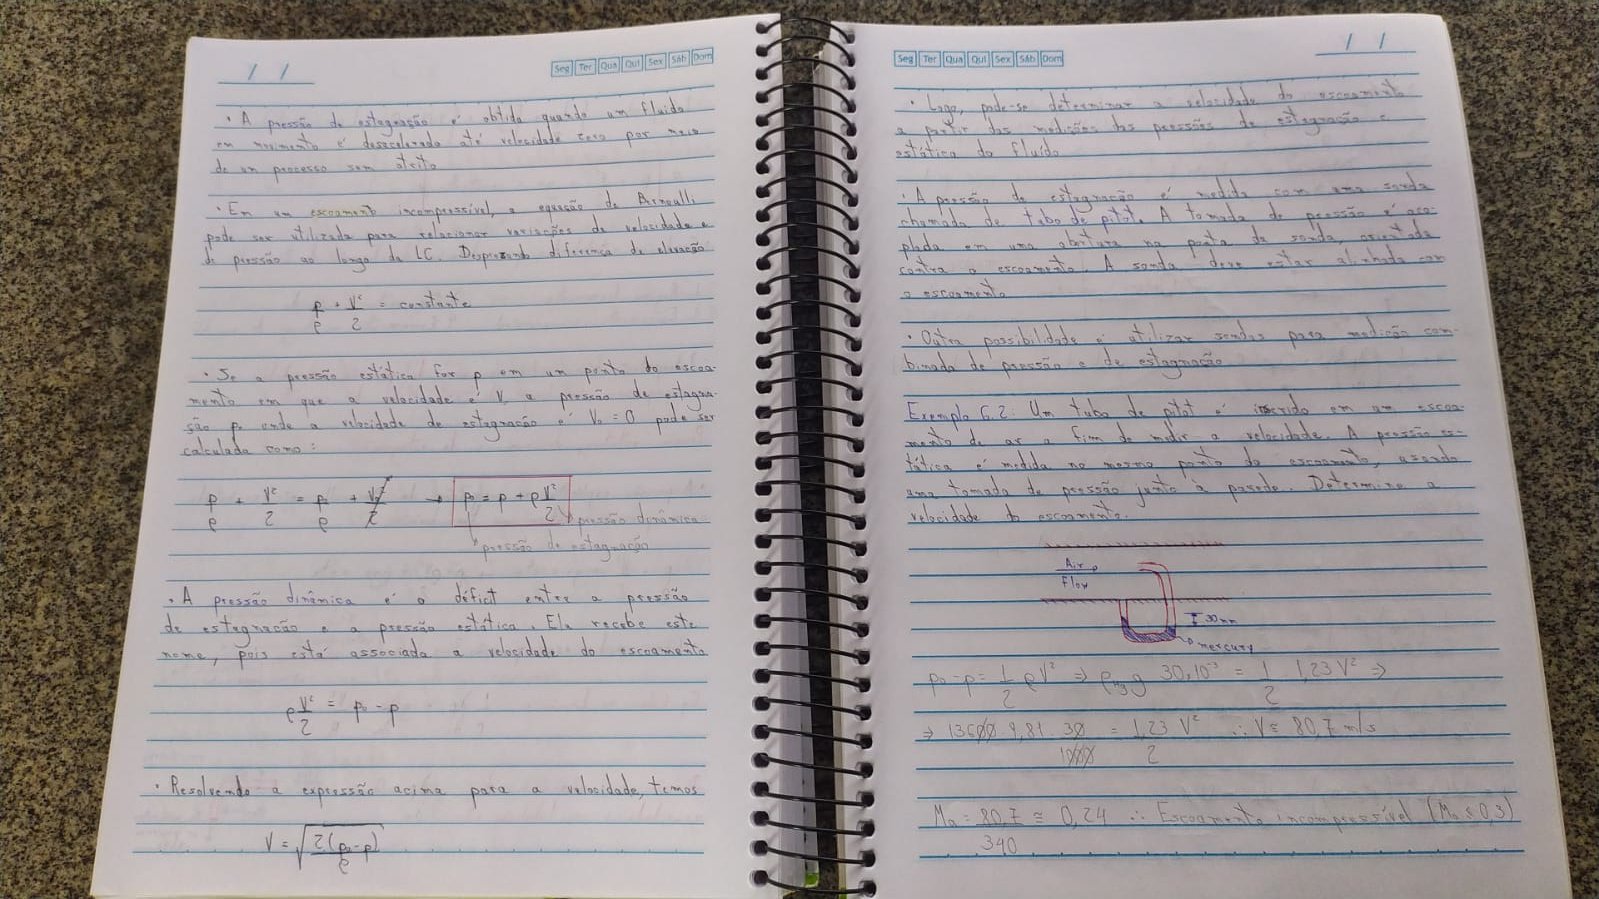 / /
Seg Ter Qua Qui Sex Sáb Dom
• A pressão de estagnação é obtida quando um fluido
em movimento é desacelerado até velocidade zero por meio
de um processo sem atrito
• Em um escoamento incompressível, a equação de Bernoulli
pode ser utilizada para relacionar variações de velocidade e
de pressão ao longo da LC. Desprezando diferença de elevação
p/ρ + V²/2 = constante
• Se a pressão estática for p em um ponto do escoa-
mento em que a velocidade é V, a pressão de estagna-
ção p₀ onde a velocidade de estagnação é V₀ = 0 pode ser
calculada como:
p/ρ + V²/2 = p₀/ρ + V₀²/2 → p₀ = p + ρV²/2
pressão dinâmica
pressão de estagnação
• A pressão dinâmica é o déficit entre a pressão
de estagnação e a pressão estática. Ela recebe este
nome, pois está associada a velocidade do escoamento
ρV²/2 = p₀ - p
• Resolvendo a expressão acima para a velocidade, temos
V = √(2(p₀-p)/ρ)
/ /
Seg Ter Qua Qui Sex Sáb Dom
• Logo, pode-se determinar a velocidade do escoamento
a partir das medições das pressões de estagnação e
estática do fluido
• A pressão de estagnação é medida com uma sonda
chamada de tubo de pitot. A tomada de pressão é aco-
plada em uma abertura na ponta da sonda, orientada
contra o escoamento. A sonda deve estar alinhada com
o escoamento
• Outra possibilidade é utilizar sondas para medição com-
binada de pressão e de estagnação
Exemplo 6.2: Um tubo de pitot é inserido em um escoa-
mento de ar a fim de medir a velocidade. A pressão es-
tática é medida no mesmo ponto do escoamento, usando
uma tomada de pressão junto à parede. Determine a
velocidade do escoamento.
Air
Flow
30mm
mercury
p₀ - p = 1/2 ρV² ⇒ ρHg g 30.10⁻³ = 1/2 1,23V² ⇒
⇒ 13600 . 9,81 . 30/1000 = 1,23/2 V² ∴ V ≅ 80,7 m/s
Ma = 80,7/340 ≅ 0,24 ∴ Escoamento incompressível (Ma ≤ 0,3)